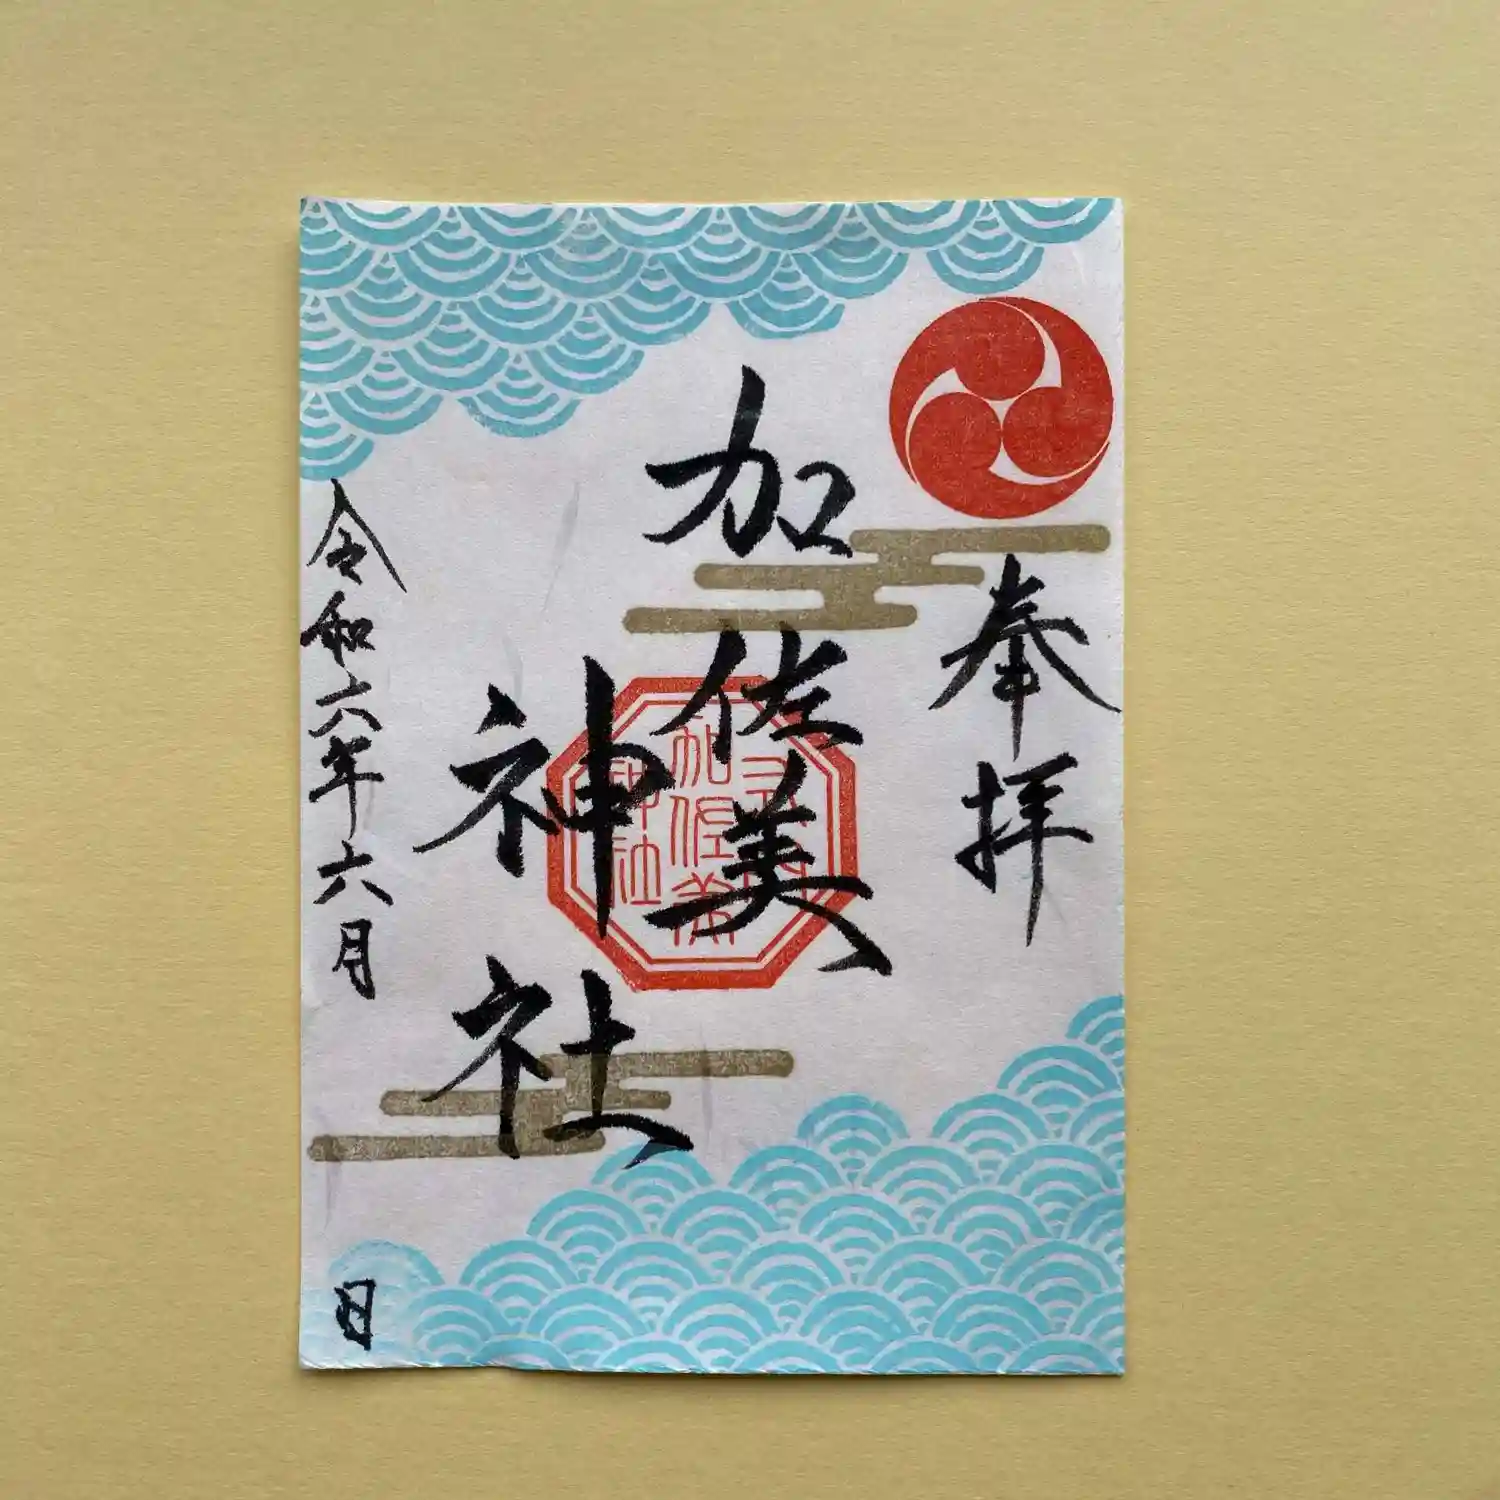 奉拝
加佐美
神社
加佐美
神社
令和六年六月 日